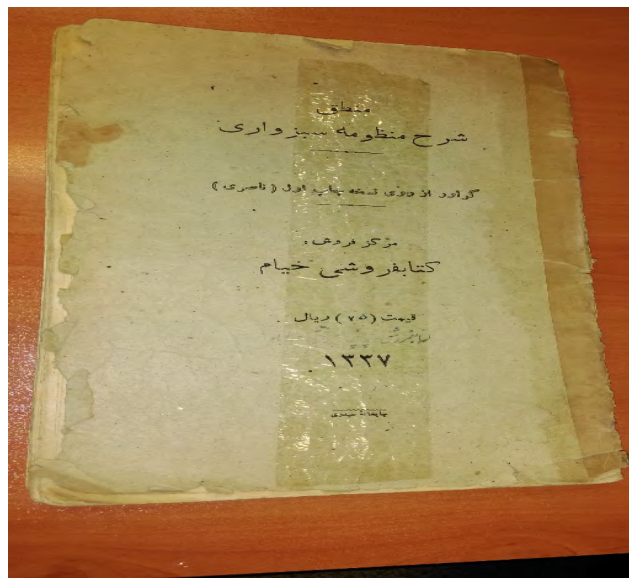 منطق
شرح منظومه سبزواری
گراور از روی نسخه چاپ اول (ناصری)
مرکز فروش:
کتابفروشی خیام
قیمت (۷۵) ریال
۱۳۳۷
چاپخانه حیدری